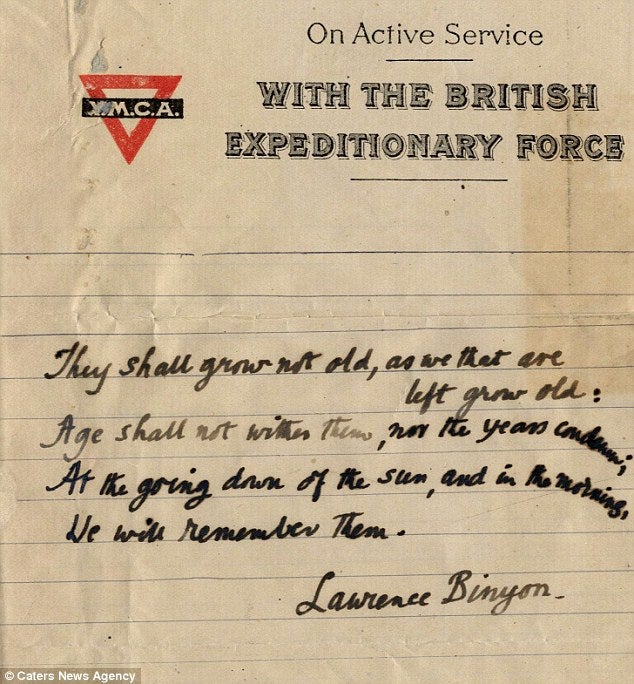 On Active Service
Y.M.C.A.
WITH THE BRITISH
EXPEDITIONARY FORCE
They shall grow not old, as we that are
left grow old:
Age shall not wither them, nor the years condemn;
At the going down of the sun, and in the morning,
We will remember them.
Lawrence Binyon.
© Caters News Agency